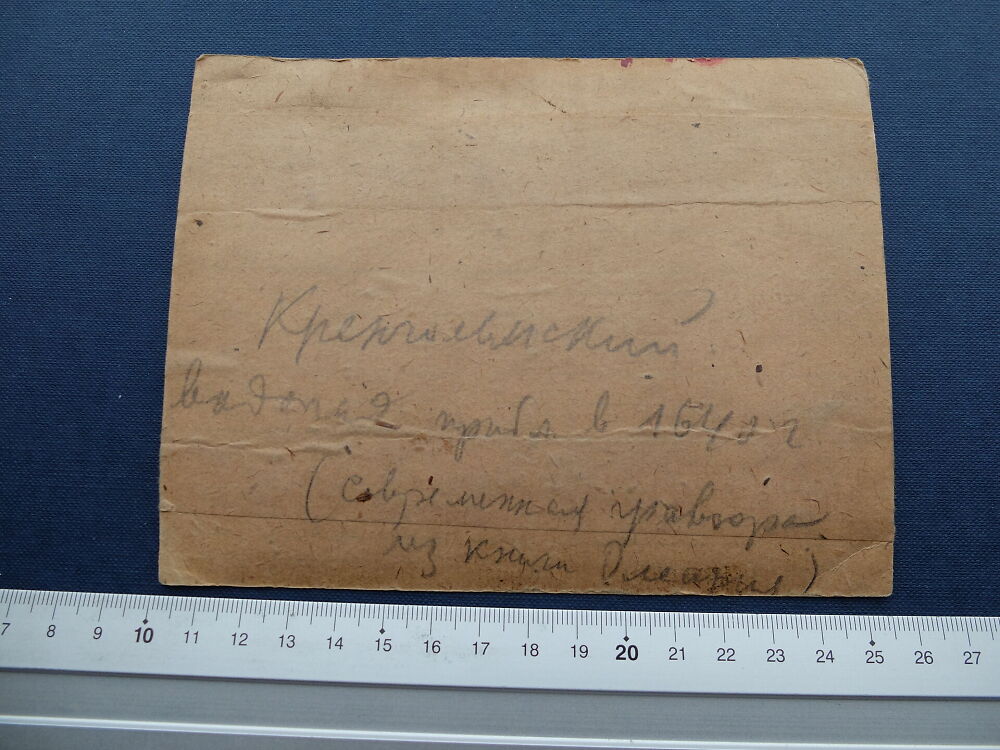 Кренгольмский
водопад прибл в 1640 г
(современная гравюра
из книги Олеария)
7 8 9 10 11 12 13 14 15 16 17 18 19 20 21 22 23 24 25 26 27